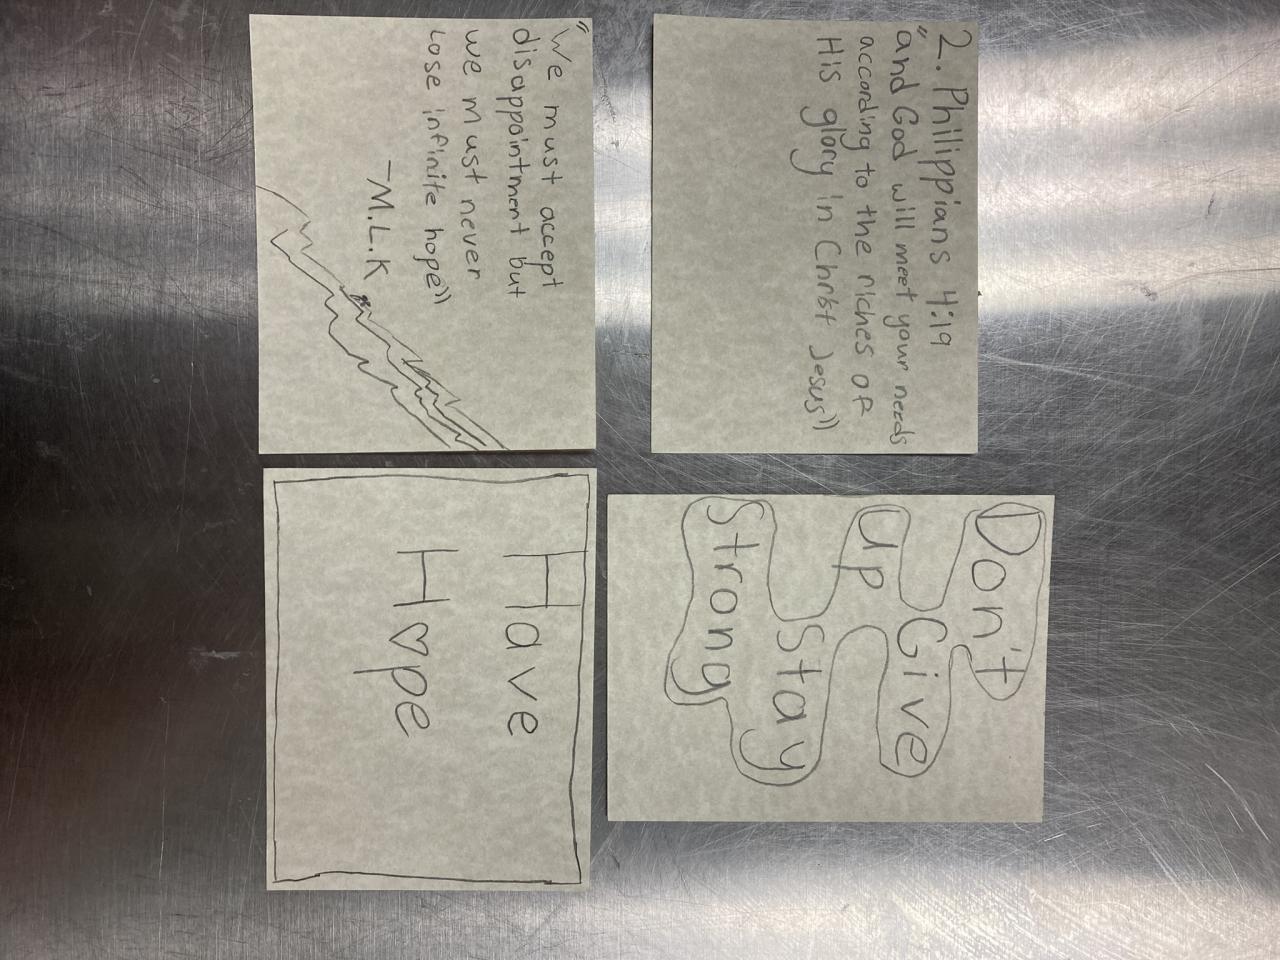 2. Philippians 4:19
"and God will meet your needs
according to the riches of
His glory in Christ Jesus"
Don't
Give
up
Stay
Strong
"We must accept
disappointment but
we must never
lose infinite hope"
-M.L.K
Have
H♡pe